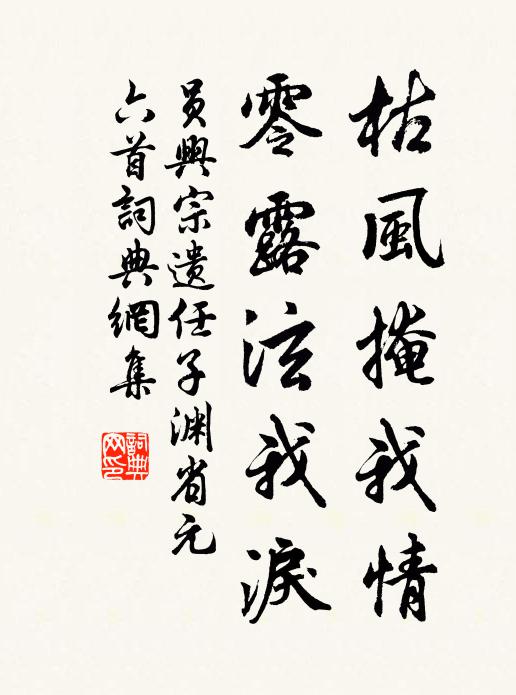 枯風掩我情
零露泫我淚
員興宗遺任子淵省元
六首詞典網集
詞典
网印